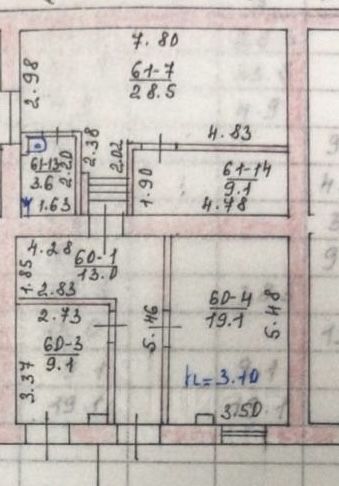 7.80
2.98
61-7
28.5
4.83
2.38
2.02
61-13
3.6
2.20
1.63
1.90
61-14
9.1
4.78
4.28
60-1
13.0
1.85
2.83
2.73
60-3
9.1
3.37
5.46
60-4
19.1
5.48
h=3.10
3.50